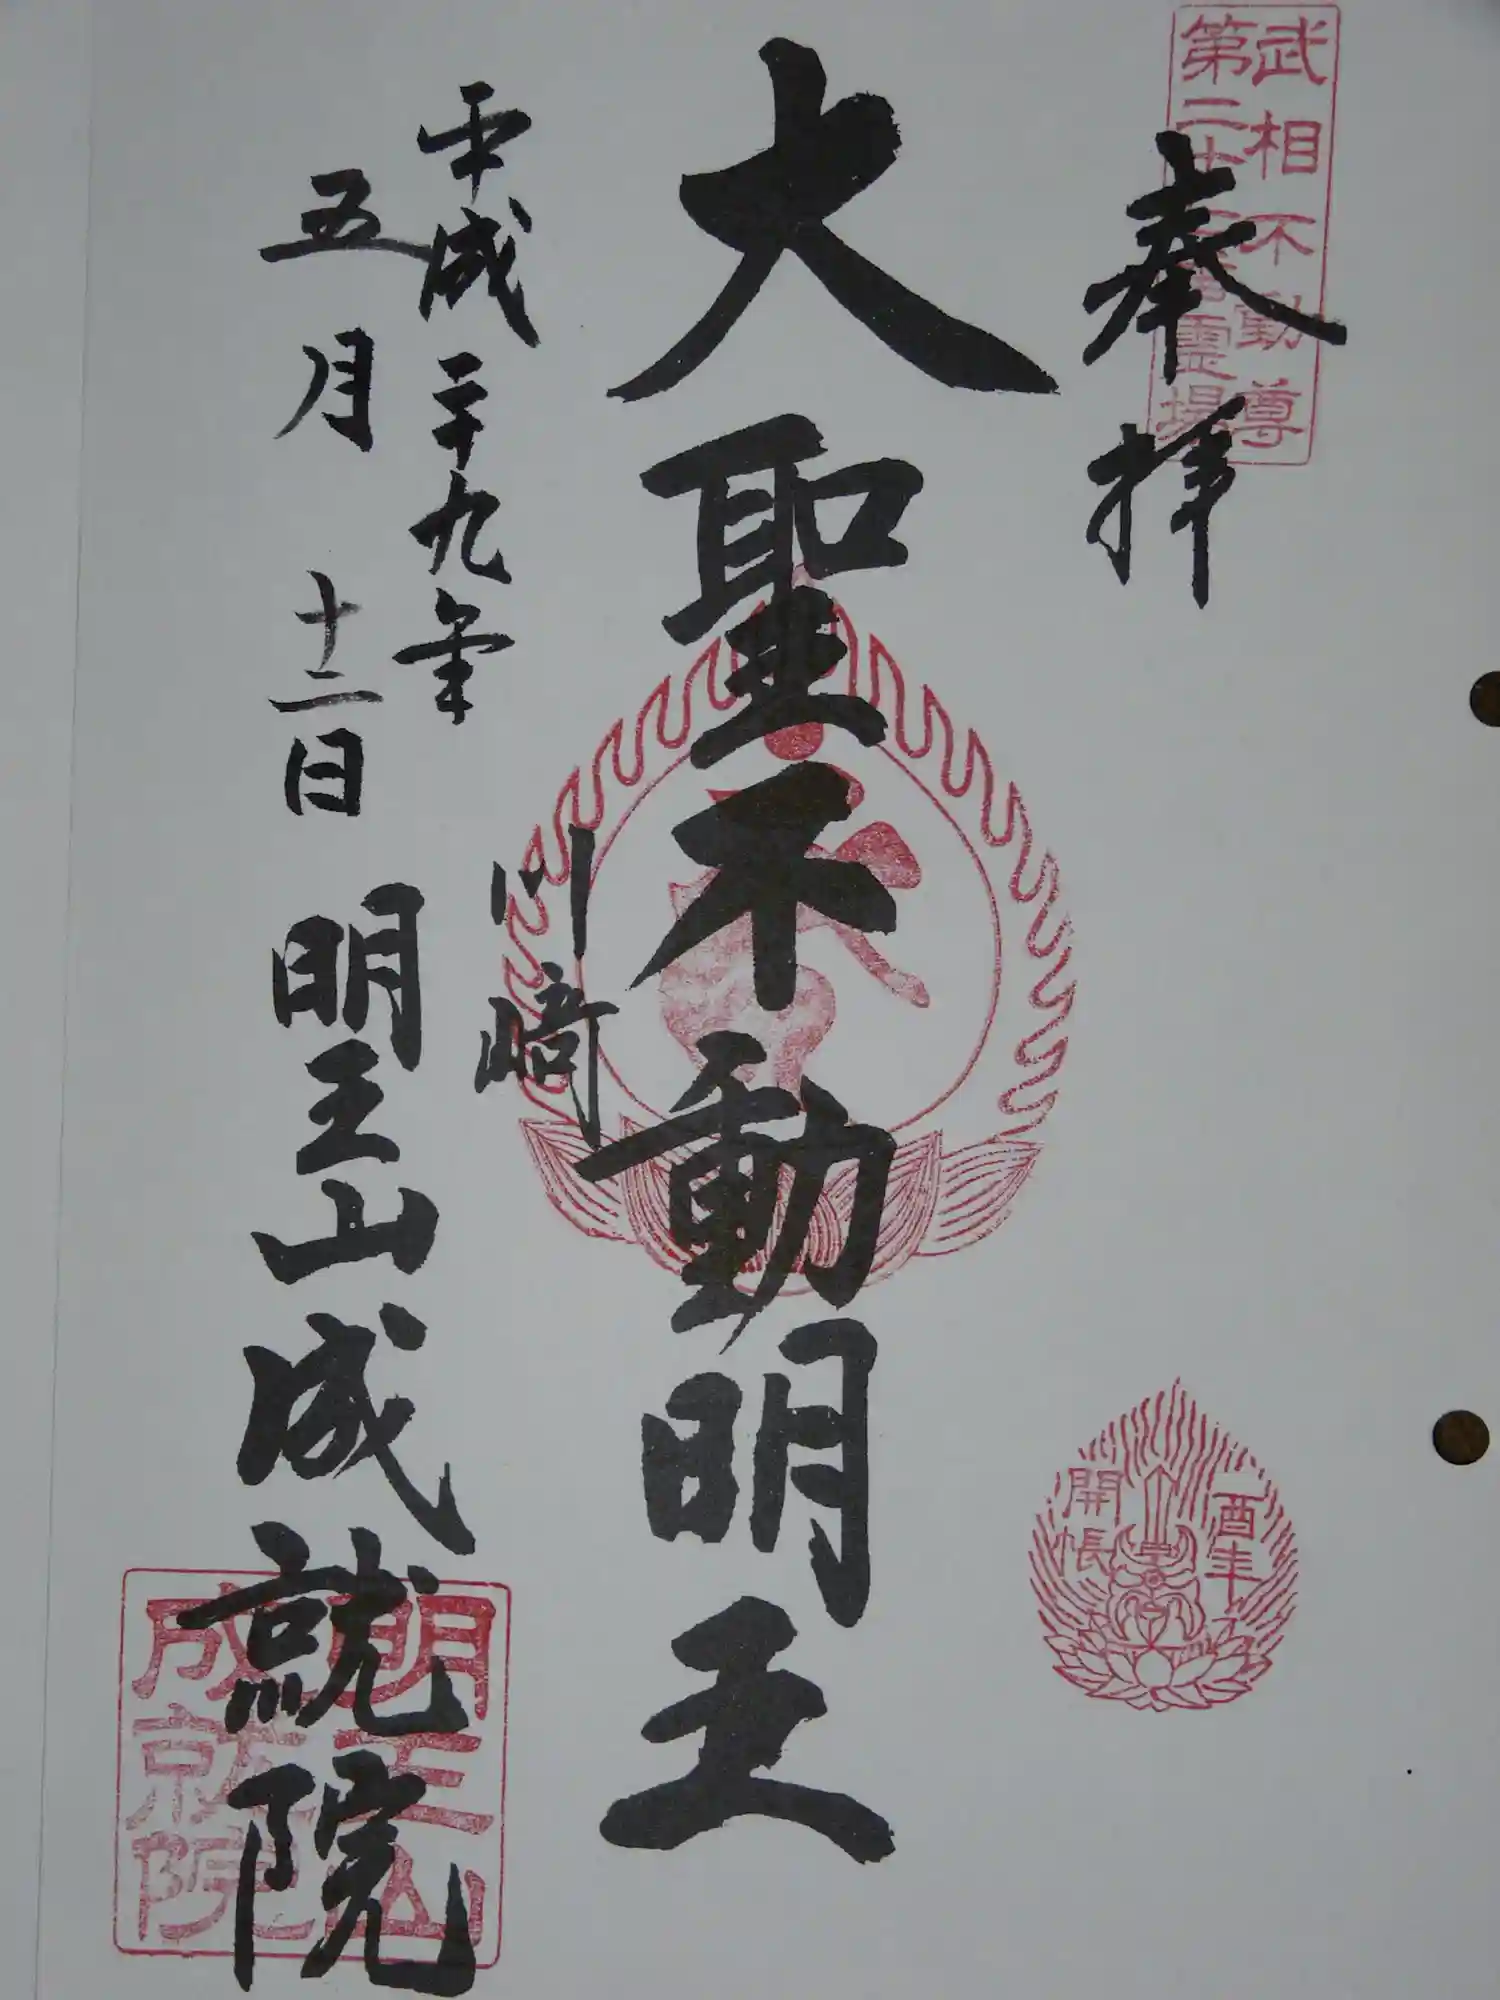 武相不動尊
霊場
奉拝
酉年
開帳
大聖不動明王
川﨑
平成二十九年
五月十二日
明王山成就院
明王山
成就院